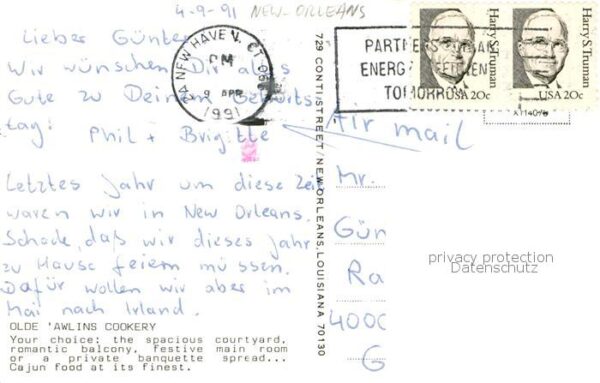 4-9-91 NEW-ORLEANS
Lieber Günter
Wir wünschen Dir alles
Gute zu Deinem Geburts
tag! Phil + Brigitte
Letztes Jahr um diese Zeit
waren wir in New Orleans.
Schade, daß wir dieses Jahr
zu Hause feiern müssen.
Dafür wollen wir aber im
Mai nach Irland.
OLDE 'AWLINS COOKERY
Your choice: the spacious courtyard,
romantic balcony, festive main room
or a private banquette spread...
Cajun food at its finest.
729 CONTI STREET/NEW ORLEANS, LOUISIANA 70130
NEW HAVEN, CT
PM
9 APR
1991
ENERG
TOMORROW
Harry S. Truman
USA 20c
Harry S. Truman
USA 20c
Air mail
Mr.
Gün
Ra
4000
G
privacy protection
Datenschutz